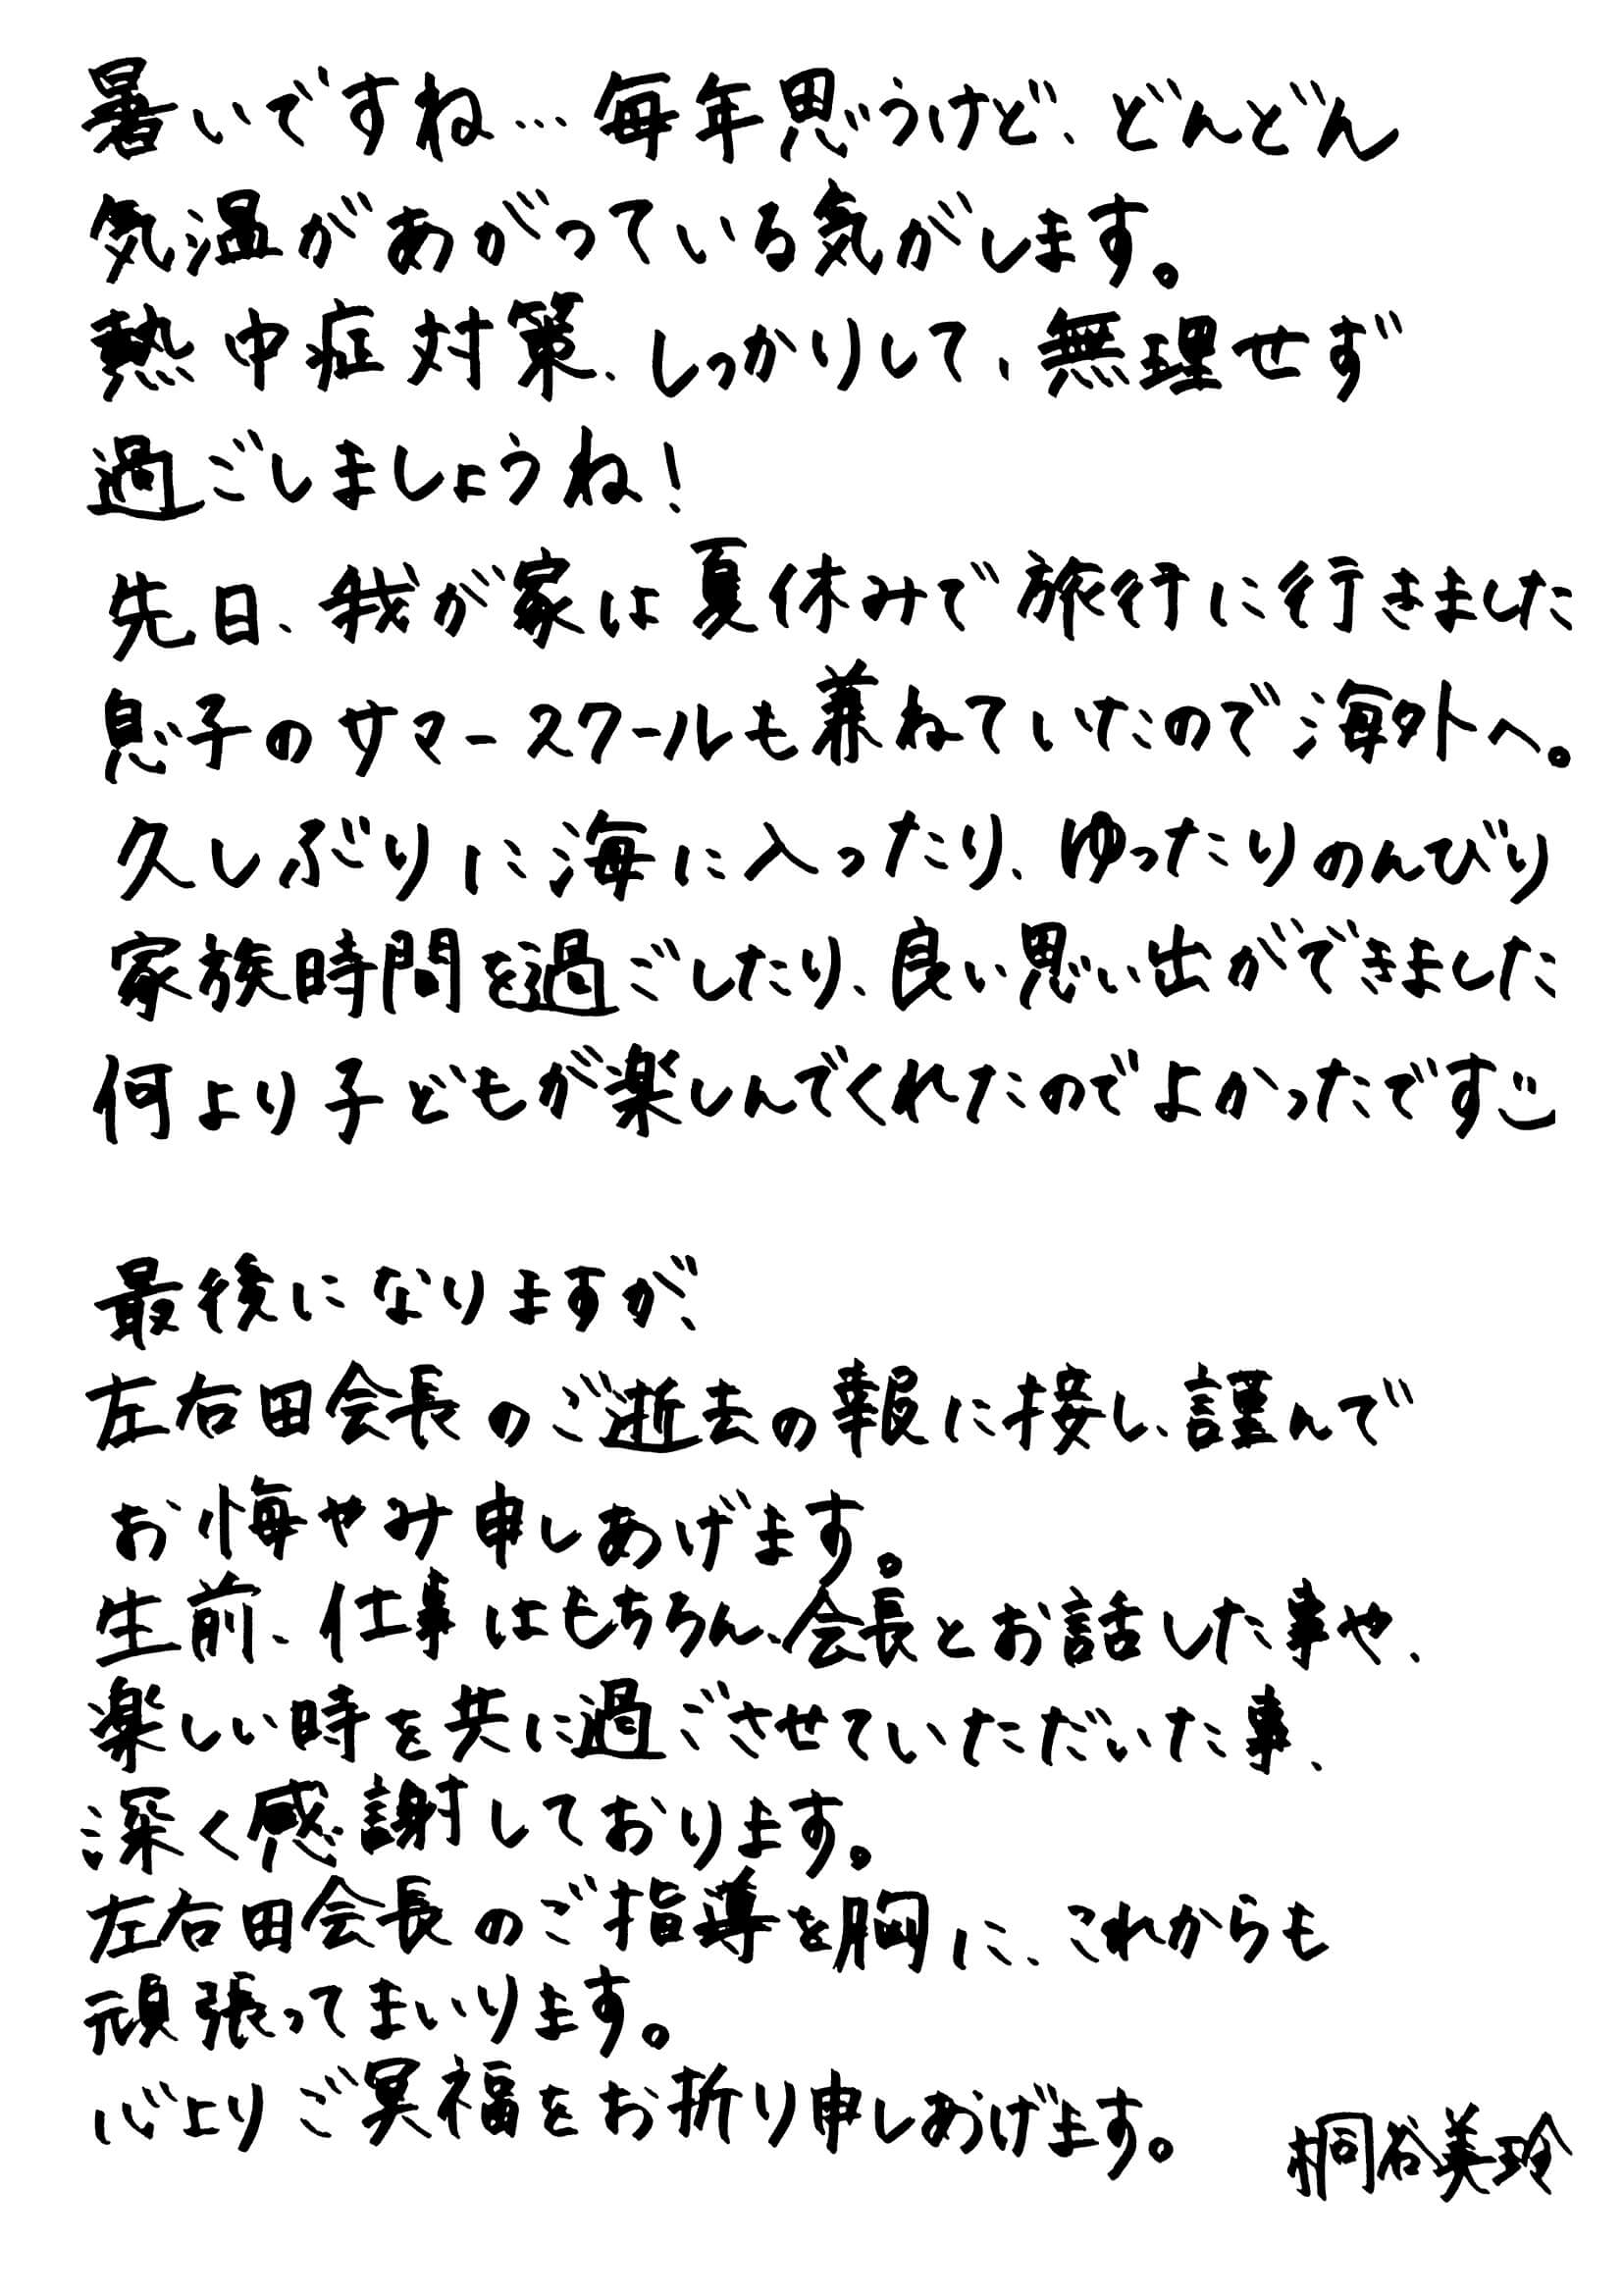 暑いですね… 毎年思うけど、どんどん
気温があがっている気がします。
熱中症対策、しっかりして、無理せず
過ごしましょうね!
先日、我が家は夏休みで旅行に行きました
息子のサマースクールも兼ねていたので海外へ。
久しぶりに海に入ったり、ゆったりのんびり
家族時間を過ごしたり、良い思い出ができました
何より子どもが楽しんでくれたのでよかったです
最後になりますが、
左右田会長のご逝去の報に接し、謹んで
お悔やみ申しあげます。
生前、仕事はもちろん、会長とお話した事や、
楽しい時を共に過ごさせていただいた事、
深く感謝しております。
左右田会長のご指導を胸に、これからも
頑張ってまいります。
心よりご冥福をお祈り申しあげます。
桐谷美玲